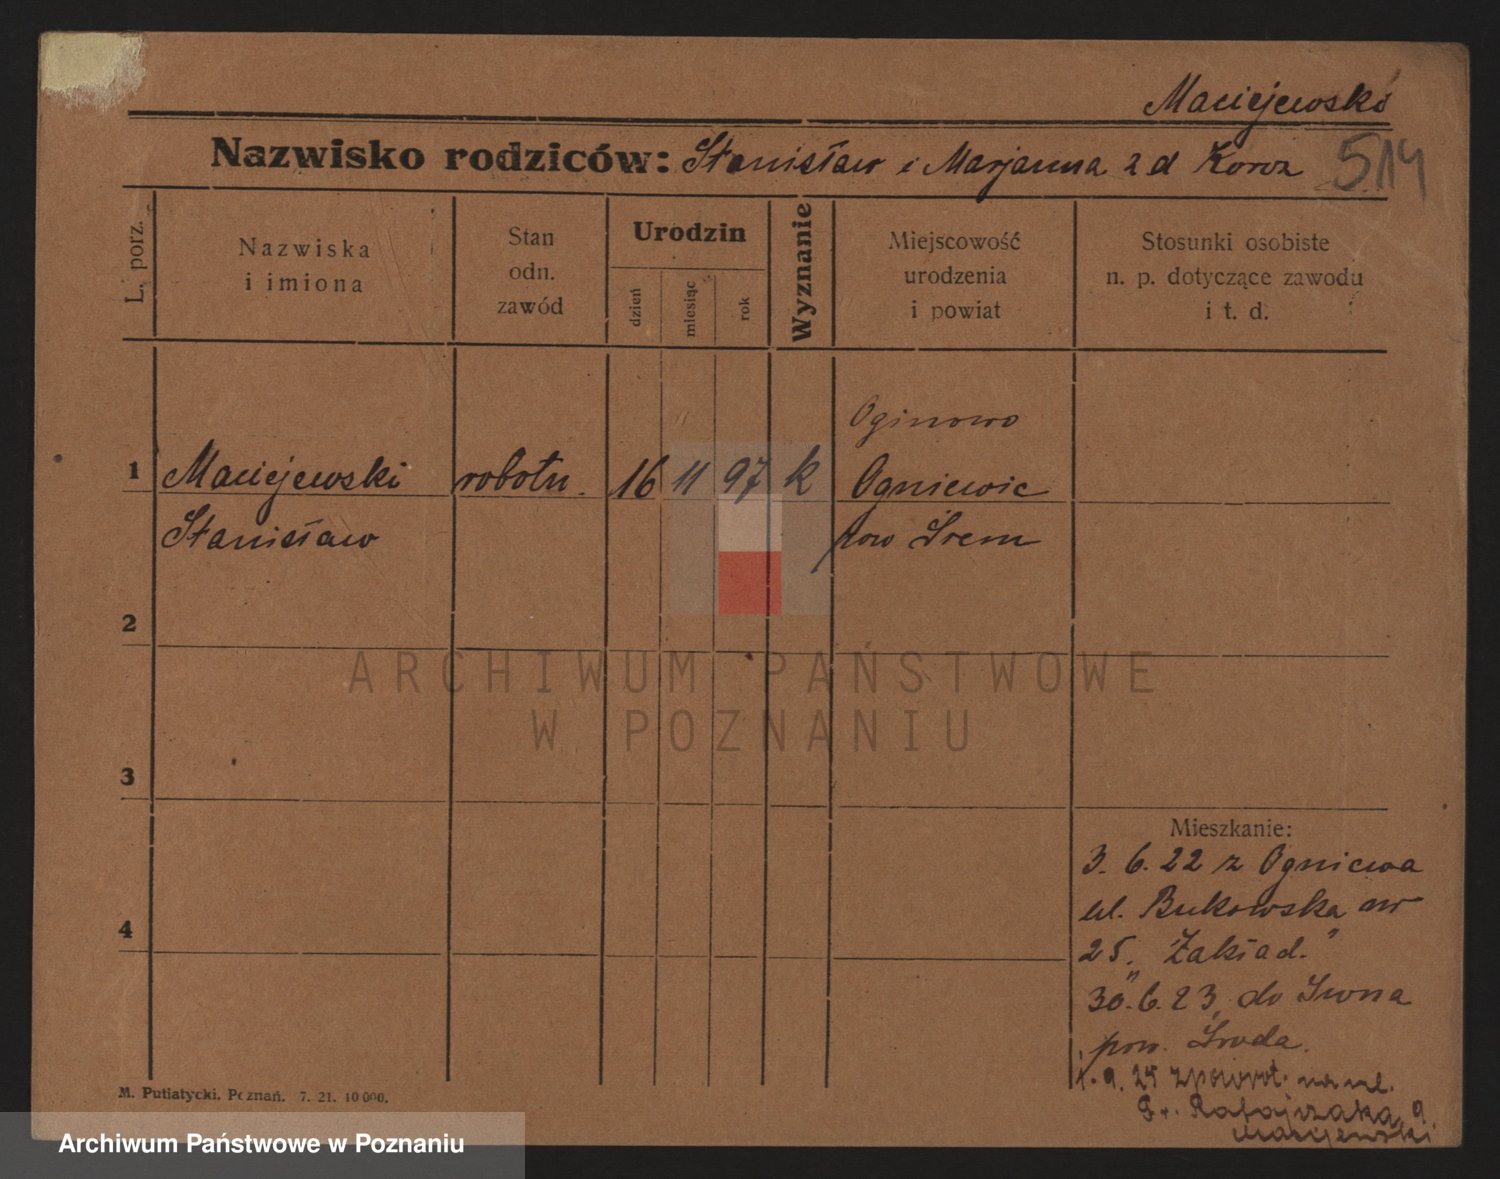 Maciejewski
Nazwisko rodziców: Stanisław i Marjanna z d Koroz
514
L. porz.
Nazwiska
i imiona
Stan
odn.
zawód
Urodzin
dzień
miesiąc
rok
Wyznanie
Miejscowość
urodzenia
i powiat
Stosunki osobiste
n. p. dotyczące zawodu
i t. d.
Oginowo
1 Maciejewski robotn. 16 11 97 k Ogniewic
Stanisław pow Śrem
2
ARCHIWUM PAŃSTWOWE
W POZNANIU
3
Mieszkanie:
3. 6. 22 z Ogniewa
ul. Bukowska nr
4
25. „Zakład."
30. 6. 23, do
pow. Środa.
1. 9. 25 zpowrot. na ul.
Ratajczaka 9.
Maciejewski
M. Putiatycki. Poznań. 7. 21. 10 000.
Archiwum Państwowe w Poznaniu